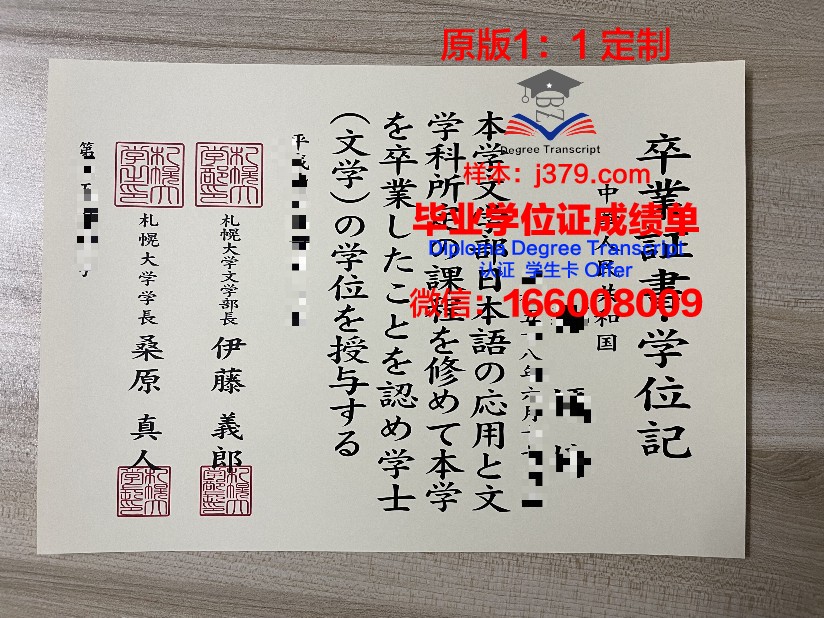 原版1：1 定制
Degree Transcript
样本：j379.com
毕业学位证成绩单
Diploma Degree Transcript
认证 学生卡 Offer
微信：166008009
卒業証書・学位記
中華人民共和国
八年六月十
本学文学部日本語の応用と文
学科所定の課程を修めて本学
を卒業したことを認め学士
（文学）の学位を授与する
平成
札幌大学文学部長 伊藤義郎
札幌大学学長 桑原真人
第